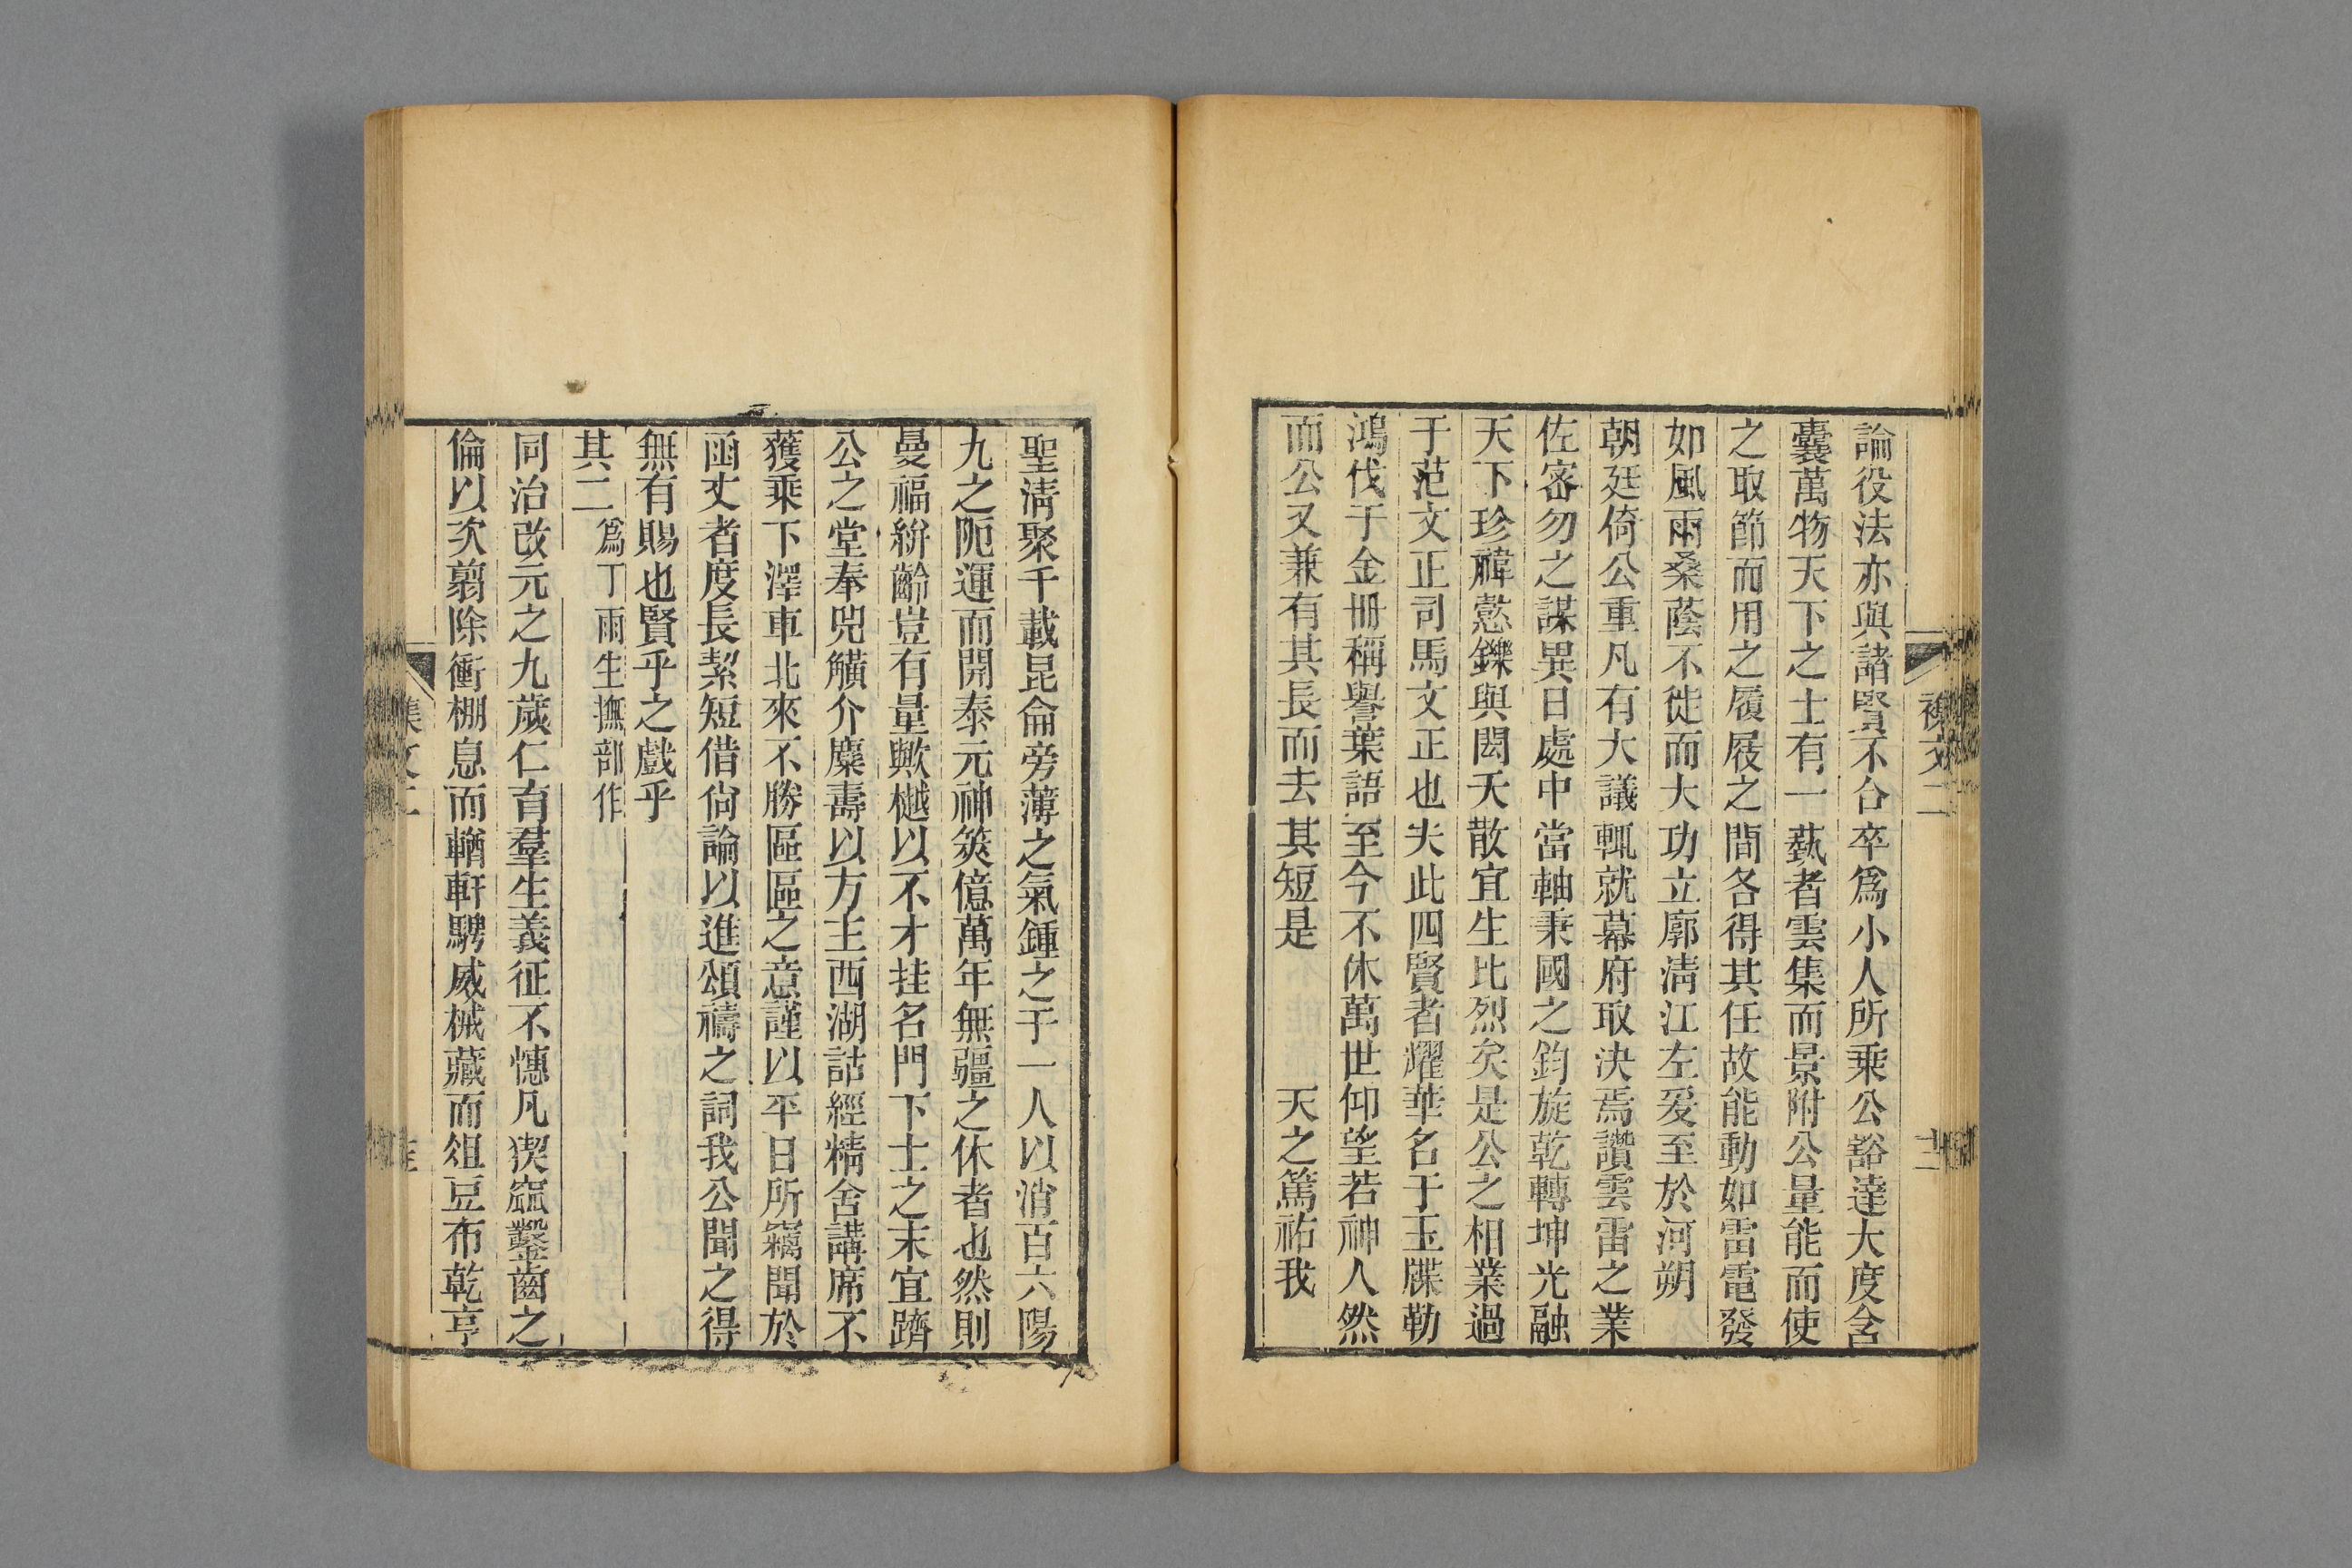 論役法亦與諸賢不合卒爲小人所乘公豁達大度含
囊萬物天下之士有一藝者雲集而景附公量能而使
之取節而用之履屐之間各得其任故能動如雷電發
如風雨桑蔭不徙而大功立廓淸江左爰至於河朔
朝廷倚公重凡有大議輒就幕府取決焉讚雲雷之業
佐密勿之謀異日處中當軸秉國之鈞旋乾轉坤光融
天下珍禕懿鑠與閎夭散宜生比烈矣是公之相業過
于范文正司馬文正也夫此四賢者耀華名于玉牒勒
鴻伐于金冊稱譽葉語至今不休萬世仰望若神人然
而公又兼有其長而去其短是 天之篤祐我
聖淸聚千載昆侖旁薄之氣鍾之于一人以消百六陽
九之阨運而開泰元神筴億萬年無疆之休者也然則
曼福絣齡豈有量歟樾以不才挂名門下士之末宜躋
公之堂奉兕觥介麋壽以方主西湖詁經精舍講席不
獲乘下澤車北來不勝區區之意謹以平日所竊聞於
函丈者度長絜短借尙論以進頌禱之詞我公聞之得
無有賜也賢乎之戲乎
其二 爲丁雨生撫部作
同治改元之九歲仁育羣生義征不憓凡猰㺄鑿齒之
倫以次翦除衝棚息而輶軒騁威械藏而俎豆布乾亨
襍文二
十二
集文二